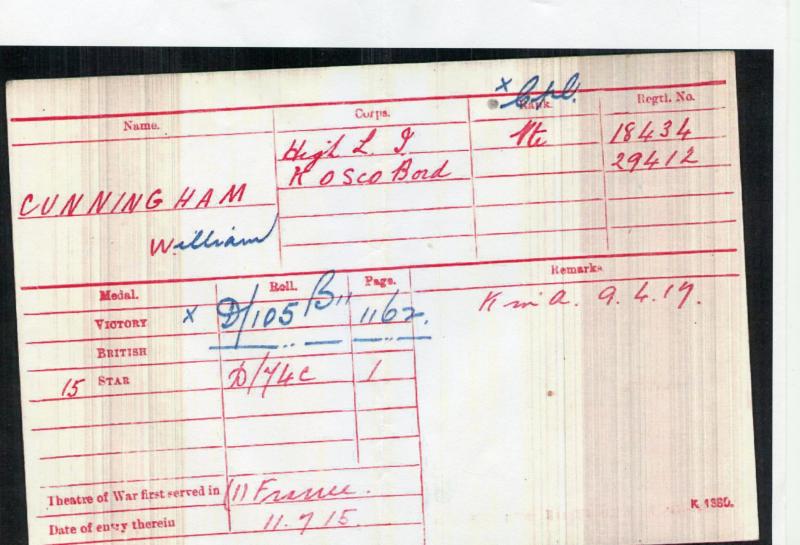 x Cpl.
Name. Corps. Rank. Regtl. No.
High L. I Pte 18434
K O Sco Bord 29412
CUNNINGHAM
William
Medal. Roll. Page. Remarks
VICTORY x D/105 B11 1162. K in A. 9.4.17.
BRITISH
15 STAR D/74C 1
Theatre of War first served in (1) France.
Date of entry therein 11.7.15.
K 1380.